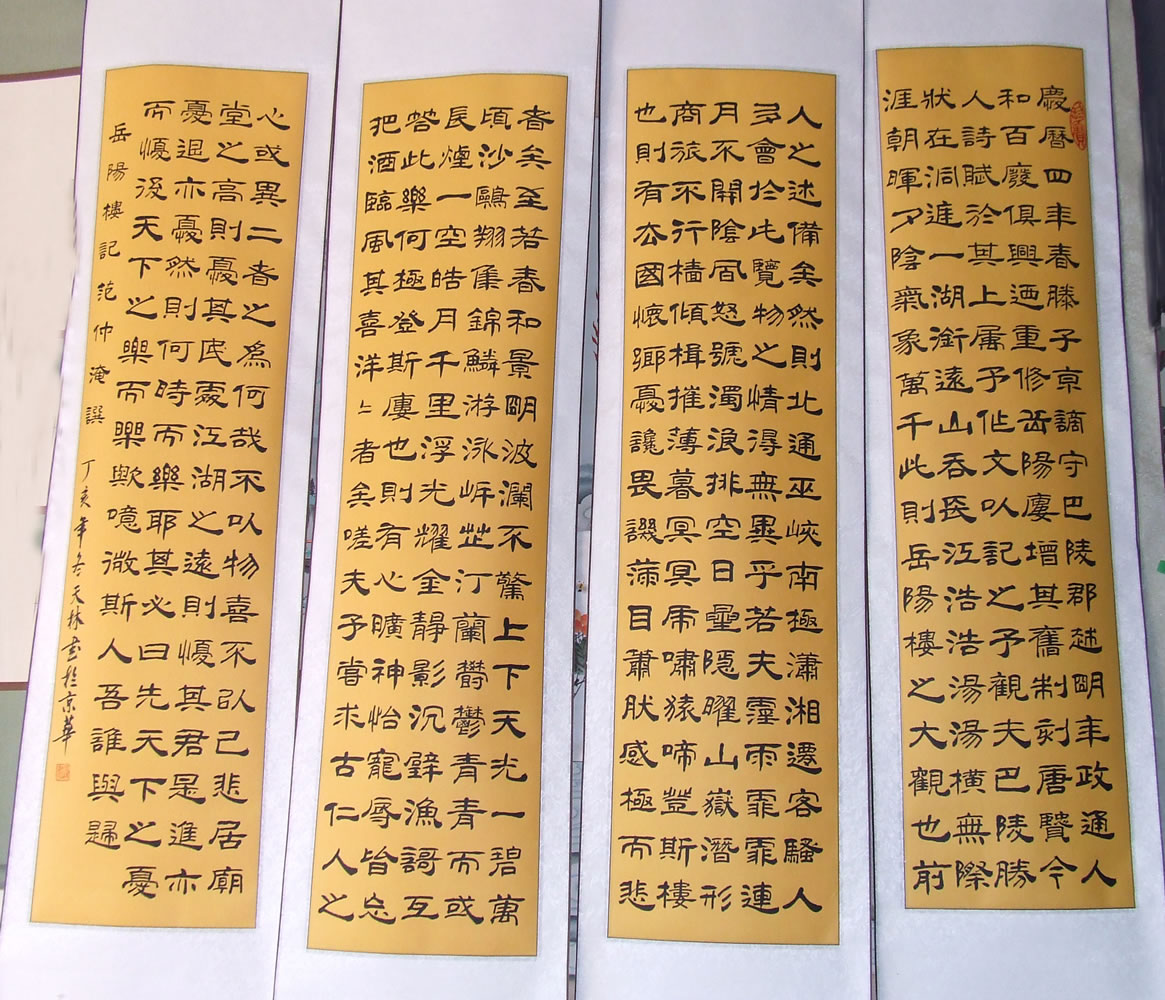 慶曆四年春滕子京謫守巴陵郡越明年政通人
和百廢俱興迺重修岳陽樓增其舊制刻唐賢今
人詩賦於其上屬予作文以記之予觀夫巴陵勝
狀在洞庭一湖銜遠山吞長江浩浩湯湯橫無際
涯朝暉夕陰氣象萬千此則岳陽樓之大觀也前
人之述備矣然則北通巫峽南極瀟湘遷客騷人
多會於此覽物之情得無異乎若夫霪雨霏霏連
月不開陰風怒號濁浪排空日星隱曜山嶽潛形
商旅不行檣傾楫摧薄暮冥冥虎嘯猿啼登斯樓
也則有去國懷鄉憂讒畏譏滿目蕭然感極而悲
者矣至若春和景明波瀾不驚上下天光一碧萬
頃沙鷗翔集錦鱗游泳岸芷汀蘭鬱鬱青青而或
長煙一空皓月千里浮光耀金靜影沉璧漁謌互
答此樂何極登斯樓也則有心曠神怡寵辱皆忘
把酒臨風其喜洋〻者矣嗟夫予嘗求古仁人之
心或異二者之為何哉不以物喜不以己悲居廟
堂之高則憂其民處江湖之遠則憂其君是進亦
憂退亦憂然則何時而樂耶其必曰先天下之憂
而憂後天下之樂而樂歟噫微斯人吾誰與歸
岳陽樓記范仲淹譔 丁亥年冬天林書於京華